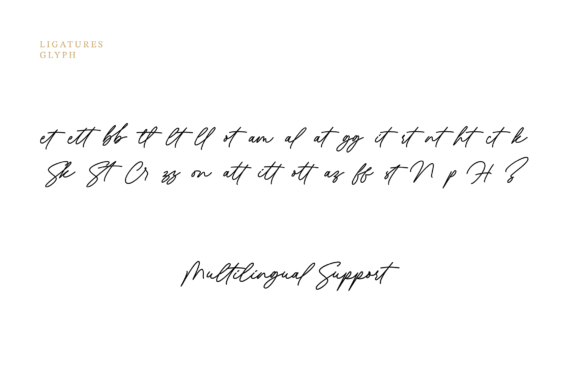 LIGATURES
GLYPH
et ett bb tt lt ll ot am al at gg it rt nt ht ct k
Sk St Cr zz on att itt ott az ff st N p H
Multilingual Support